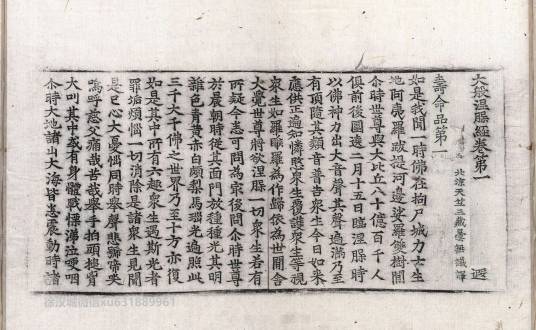 大般涅槃經卷第一 遐
北涼天竺三藏曇無讖譯
壽命品第一
如是我聞一時佛在拘尸城力士生
地阿夷羅跋提河邊娑羅雙樹間
尒時世尊與大比丘八十億百千人
俱前後圍遶二月十五日臨涅槃時
以佛神力出大音聲其聲遍滿乃至
有頂隨其類音普告衆生今日如來
應供正遍知憐愍衆生覆護衆生等視
衆生如羅睺羅為作歸依為世間舍
大覺世尊將欲涅槃一切衆生若有
所疑今悉可問為㝡後問尒時世尊
於晨朝時從其面門放種種光其明
雜色青黃赤白頗梨馬瑙光遍照此
三千大千佛之世界乃至十方亦復
如是其中所有六趣衆生遇斯光者
罪垢煩惱一切消除是諸衆生見聞
是已心大憂惱同時舉聲悲號啼哭
嗚呼慈父痛哉苦哉舉手拍頭搥胷
大叫其中或有身體戰慄涕泣哽咽
尒時大地諸山大海皆悉震動時諸